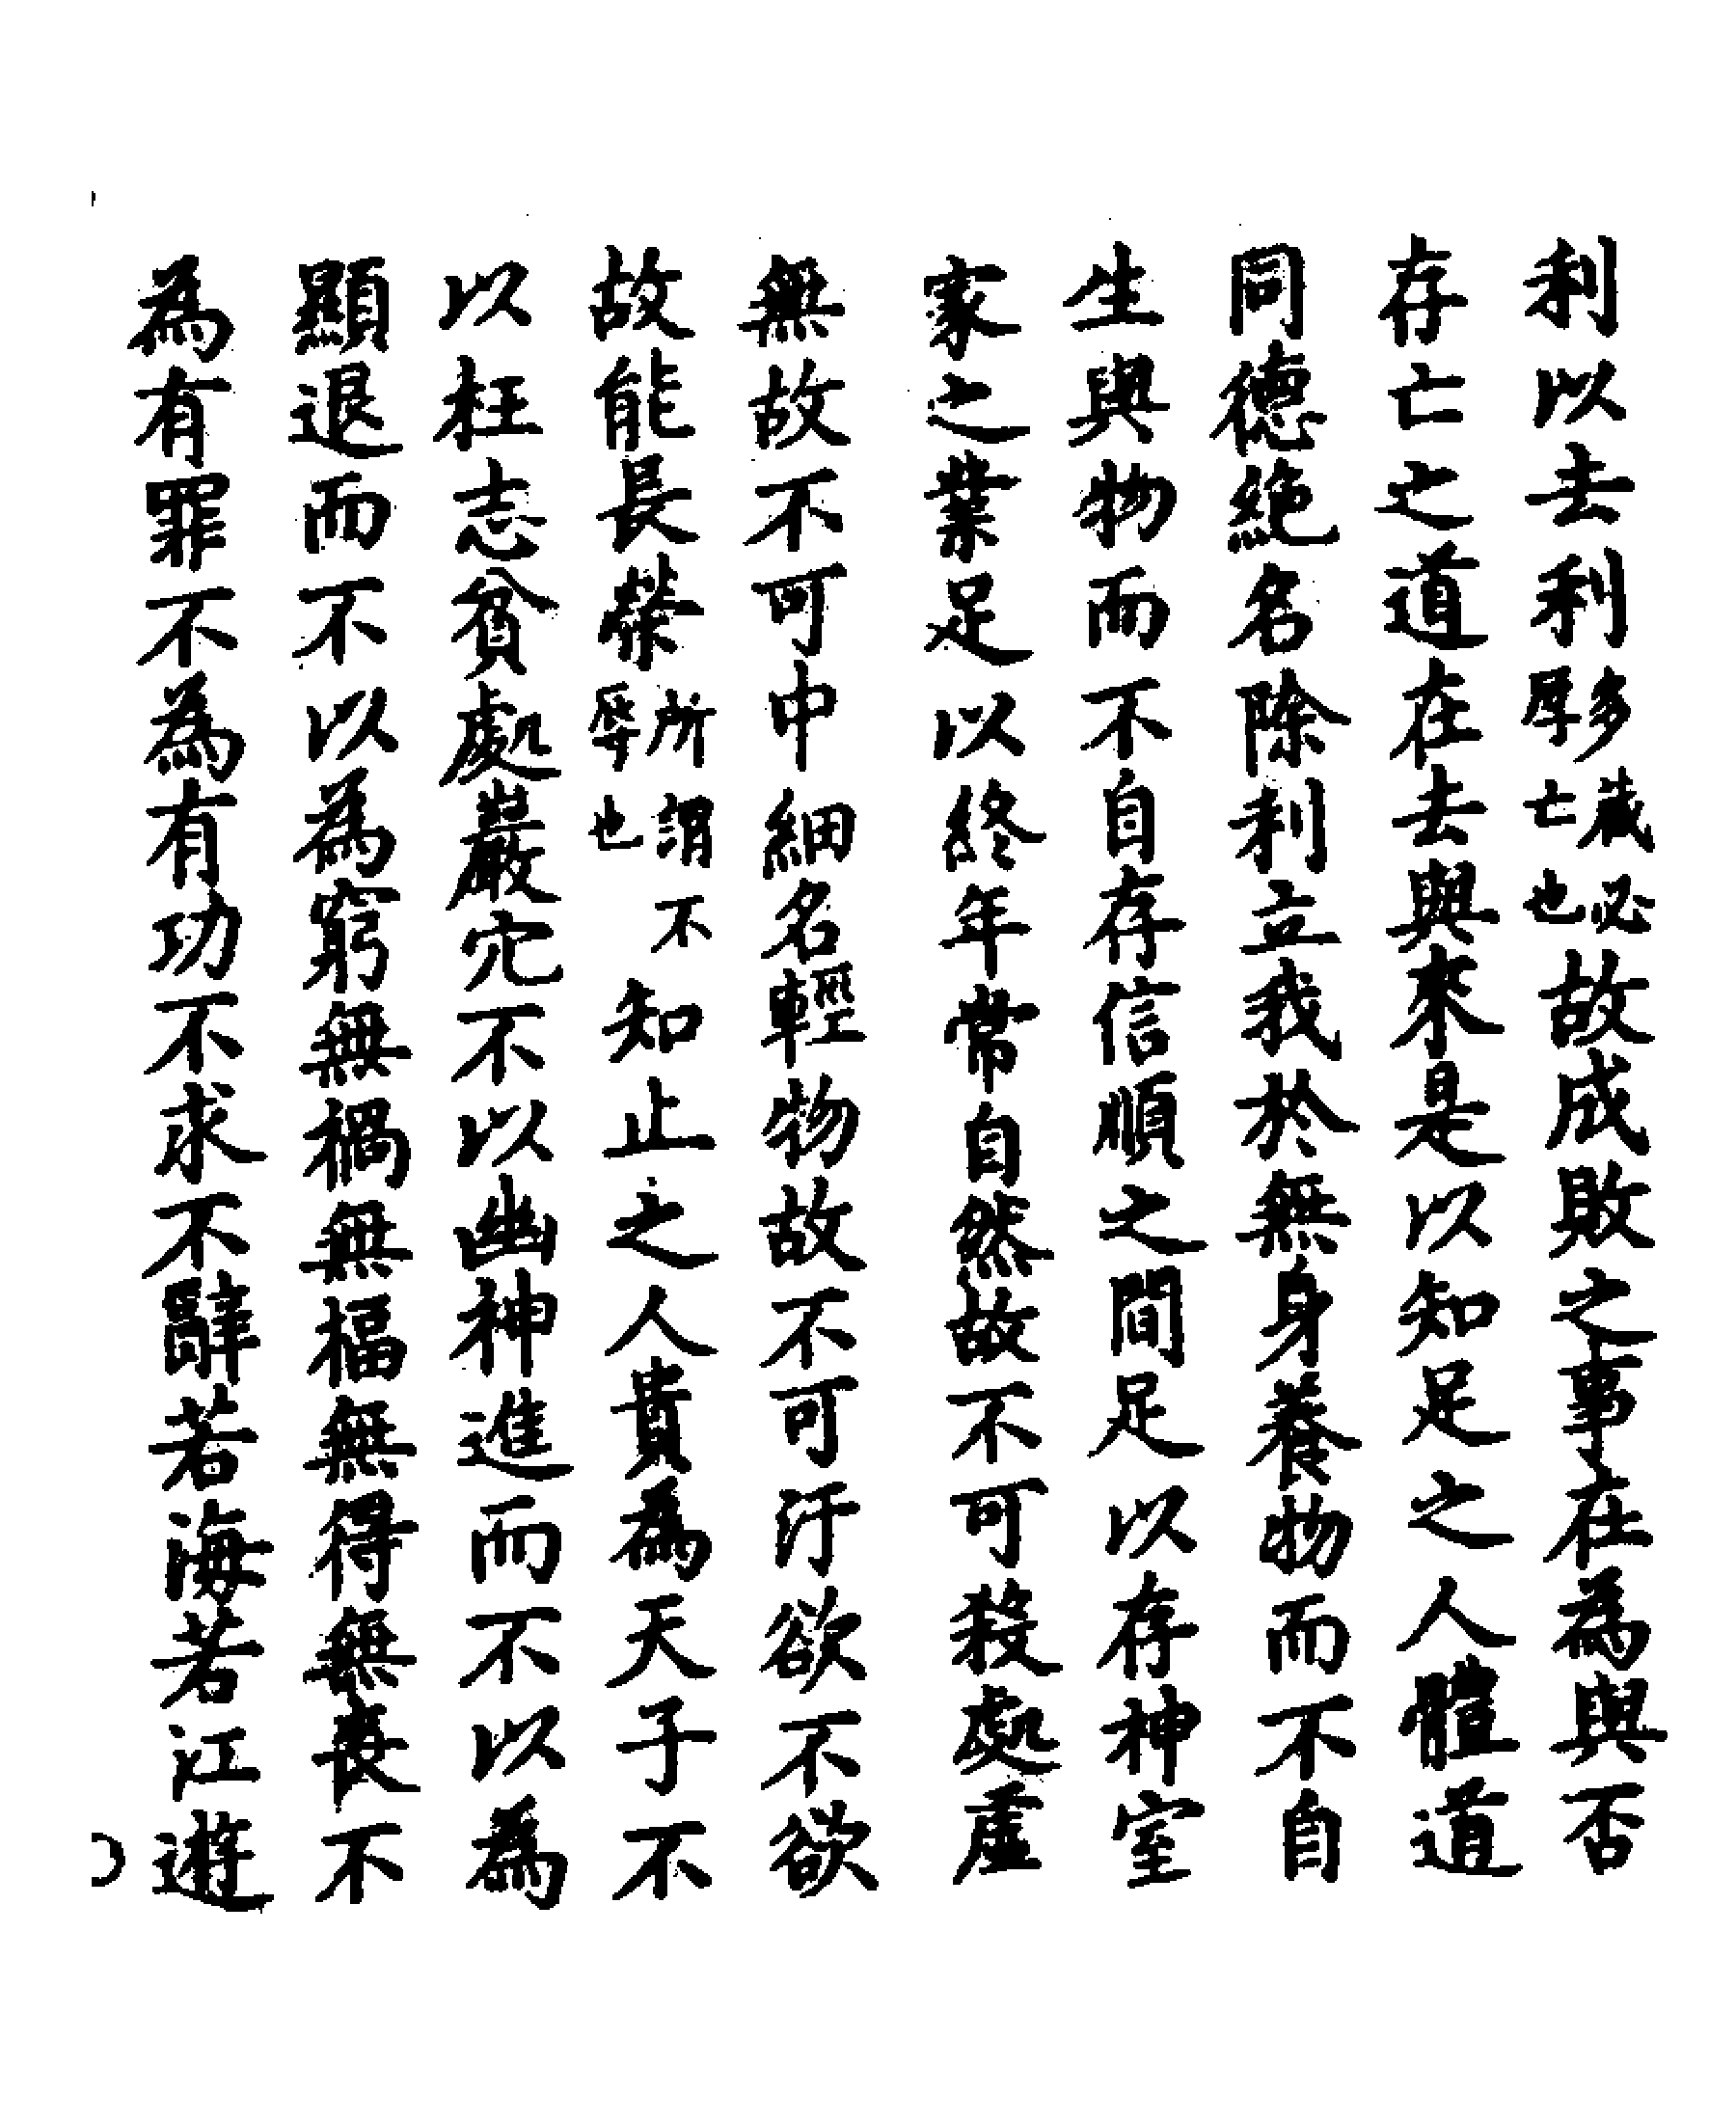 利以去利多藏必厚亡也故成敗之事在為與否
存亡之道在去與來是以知足之人體道
同德絶名除利立我於無身養物而不自
生與物而不自存信順之間足以存神室
家之業足以終年常自然故不可殺處虛
無故不可中細名輕物故不可汙欲不欲
故能長榮所謂不辱也知止之人貴為天子不
以枉志貧處巖穴不以幽神進而不以為
顯退而不以為窮無禍無福無得無喪不
為有罪不為有功不求不辭若海若江遊